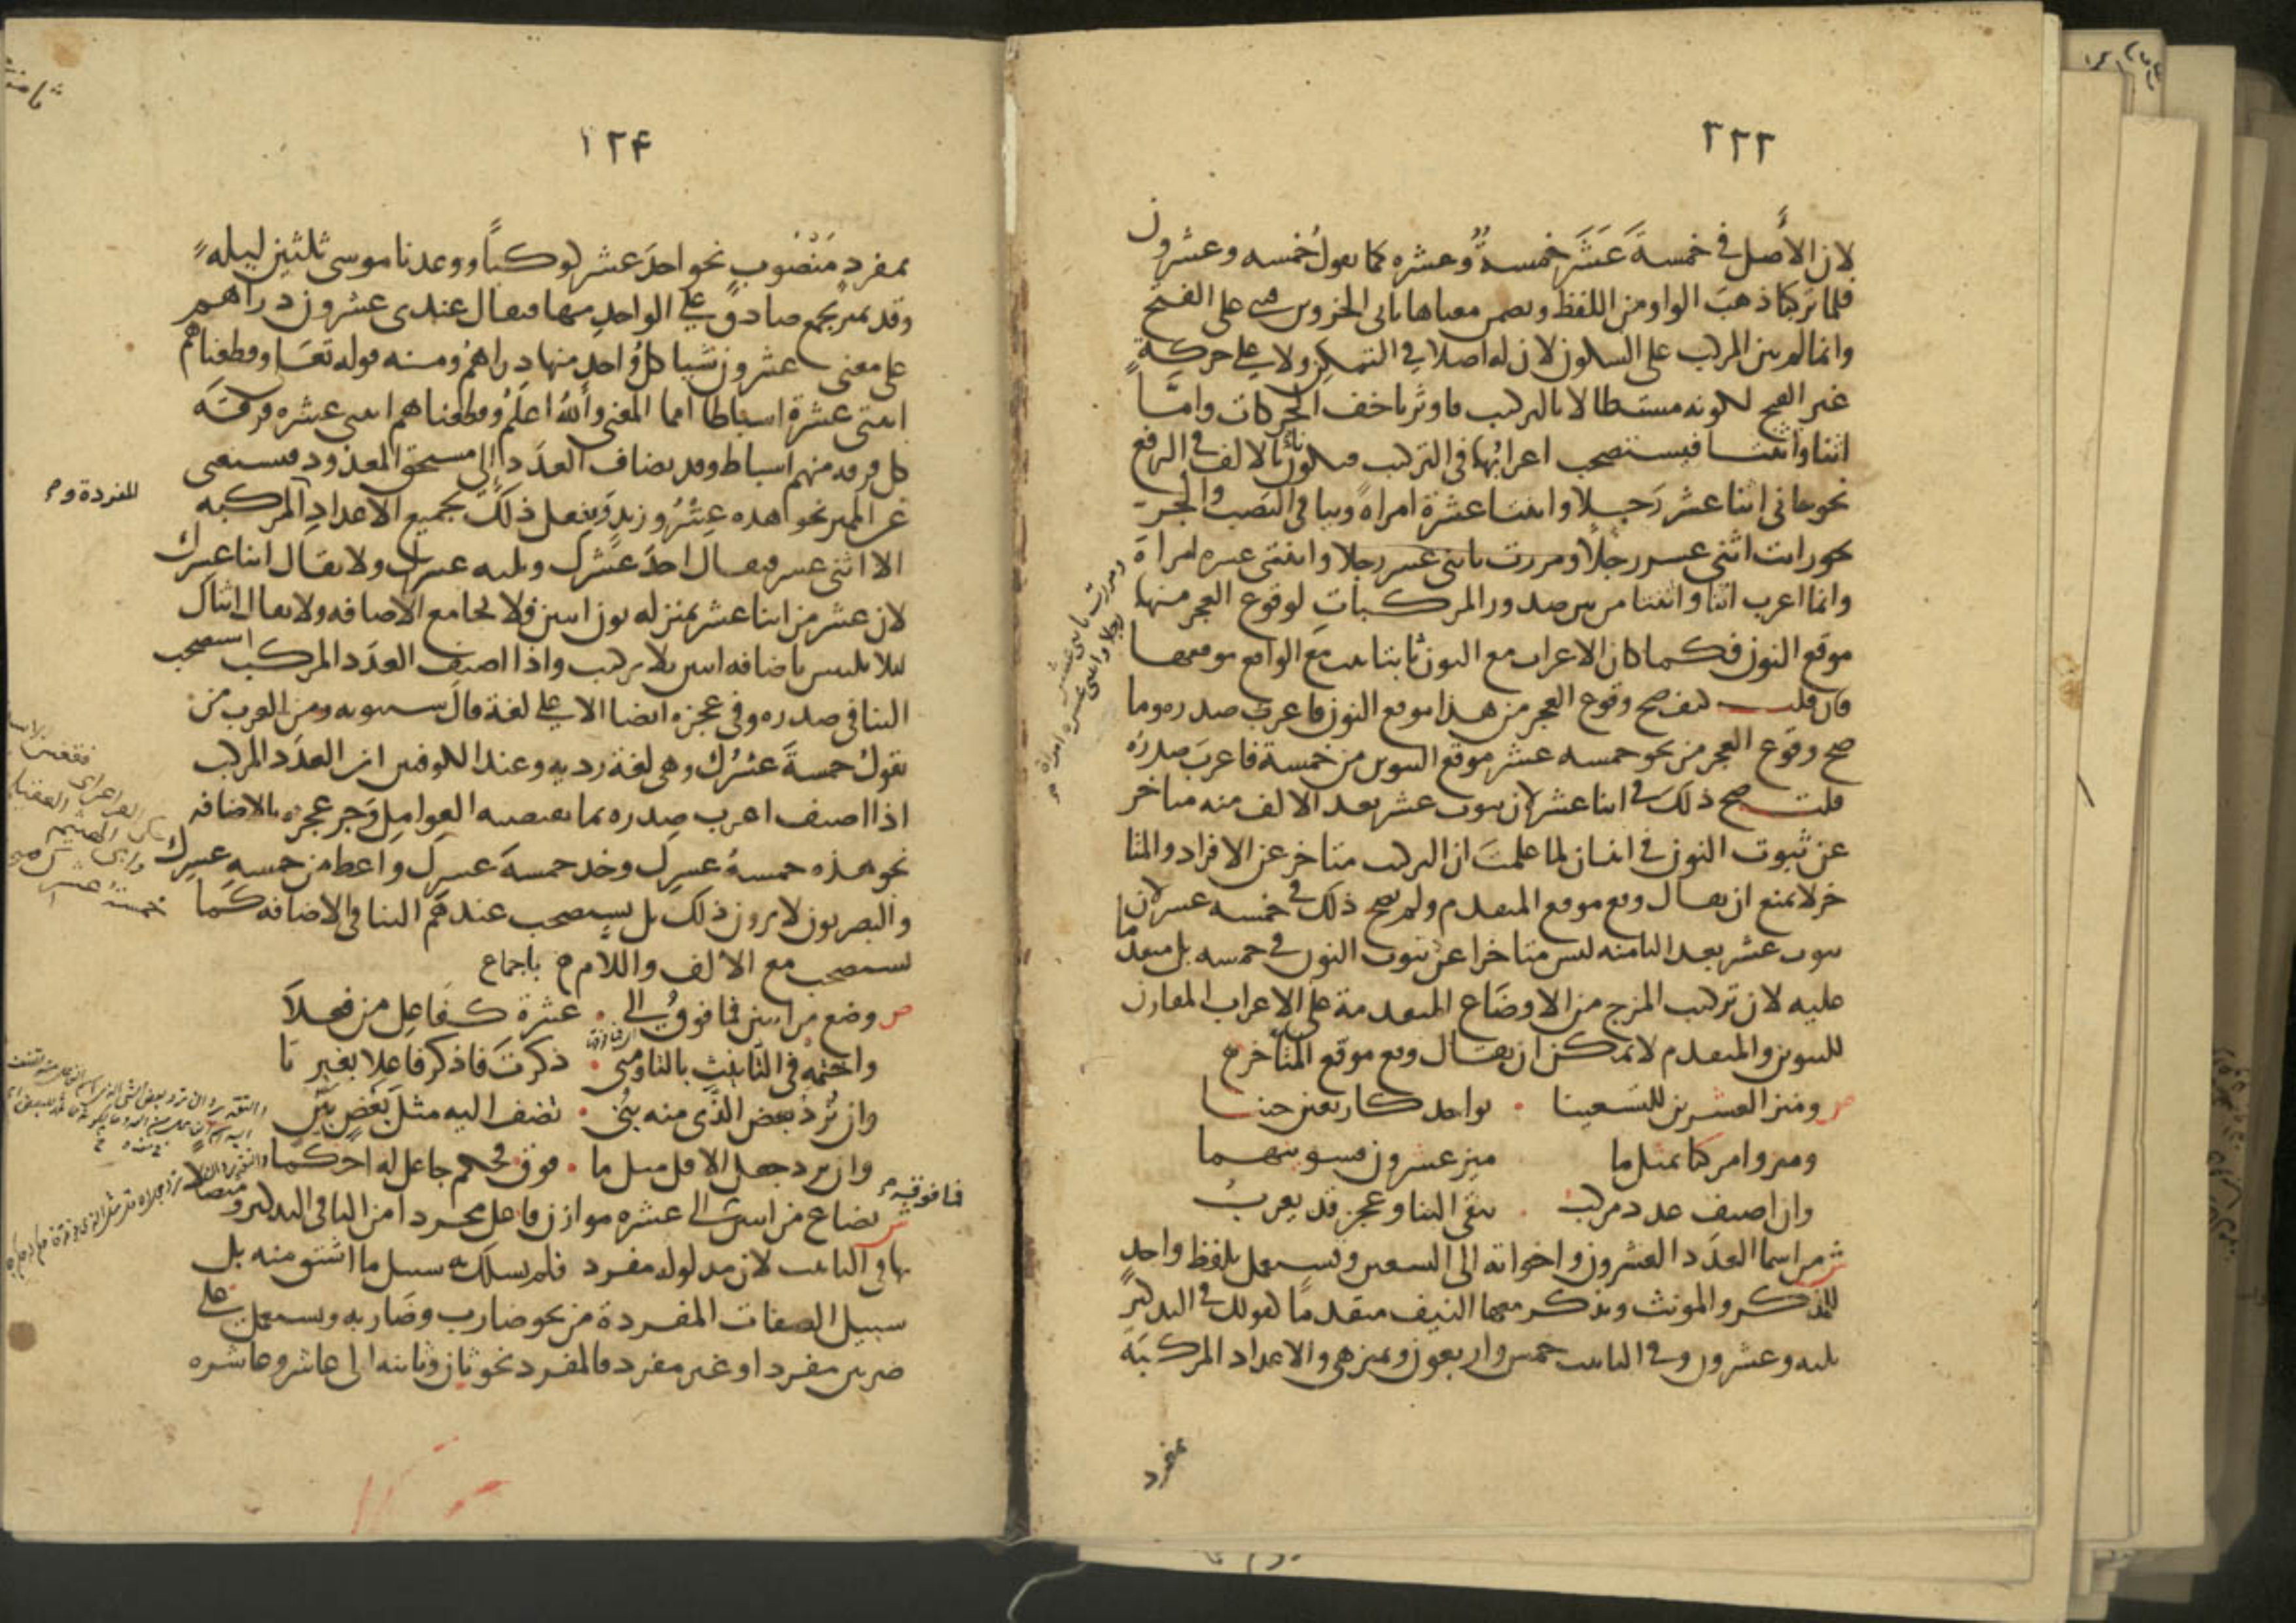 ٣٢٢
لان الأصل في خمسةَ عَشَرَ خمسةٌ وعشره كما يعول خمسه وعشرون
فلما تركبا ذهبَ الواو من اللفظ وتضمن معناها ثاني الجزوين فبني على الفتح
وانما لم يبن المركب على السكون لان له اصلا في التمكن ولا على حركةٍ
غير الفتح لكونه مستطالا بالتركيب فاوثر باخف الحركات وامّا
اثنا واثنتا فيستصحب اعرابُها في التركيب فيكونان بالالف في الرفع
نحو جاني اثنا عشر رجلا واثنتا عشرة امراةً وبيا في النصب والجر
نحو رايت اثني عشر رجلًا ومررت باثني عشر رجلا واثنتي عشره امراة
وانما اعرب اثنا واثنتا من بين صدور المركبات لوقوع العجز منها
موقع النون فكما كان الاعراب مع النون ثابتا ثبت مع الواقع موقعها
فان قلت كيف صح وقوع العجز من هذا موقع النون فاعرب صدره وما
صح وقوع العجز من نحو خمسه عشر موقع التنوين من خمسة فاعربَ صدره
قلت صح ذلك في اثنا عشر لان ثبوت عشر بعد الالف منه متاخر
عن ثبوت النون في اثنان لما علمت ان التركيب متاخر عن الافراد والمتا
خر لا يمنع ان يقال وقع موقع المتقدم ولم يصح ذلك في خمسه عشر لان
ثبوت عشر بعد التا منه ليس متاخرا عن ثبوت التنوين في خمسه بل متقدما
عليه لان تركيب المزج من الاوضاع المتقدمة على الاعراب المقارن
للتنوين والمتقدم لا يمكن ان يقال وقع موقع المتاخر
ص وميز العشرين للتسعينا • بواحد كاربعين حينا
وميزوا مركبا بمثل ما ميز عشرون فسوينهما
وان اضيف عدد مركب . يبقى البنا وعجز قد يعربُ
ش من اسما العدَد العشرون واخواته الى التسعين ويستعمل بلفظ واحدٍ
للمذكر والمونث ويذكر معها النيف متقدمًا كقولك في التذكير
ثلثه وعشرون وفي التانيث خمس واربعون وتميز هي والاعداد المركبَة
بمفرد
ومررت باثني عشر
رجلا واثنتي عشره امراة
١٢۴
بمفردٍ مَنْصُوبٍ نحو احدَ عشر كوكبًا ووعدنا موسى ثلثين ليلهً
وقد يميز بجمع صادق على الواحد منها فيقال عندي عشرون دراهم
على معنى عشرون شيا كل واحد منها دراهم ومنه قوله تعَا وقطعناهم
اثنتى عشرة اسباطا امما المعنى والله اعلَم وقطعناهم اثنتى عشره فرقَه
كل فرقه منهم اسباط وقد يضاف العدَد الى مستحق المعدود فيستغنى
عن المميز نحو هذه عشرُو زيدٍ ويفعل ذلك بجميع الاعدادِ المركبه
الا اثني عشر فيقال احدَ عَشَرك وثلثه عشرك ولا يقال اثنا عشرك
لان عشر من اثنا عشر بمنزله نون اثنين فلا تجامع الاضافه ولا يقال اثناك
ليلا يلتبس باضافه اثنين بلا تركيب واذا اضيف العدَد المركب استصحب
البنا في صدره وفي عجزه ايضا الا على لغة قال سيبويه ومن العرب من
يقول خمسةَ عشرُك وهي لغة رديه وعند الكوفيين ان العدَد المركب
اذا اضيف اعرب صدره بما تقتضيه العوامل وجر عجزه بالاضافه
نحو هذه خمسةُ عشرِك وخذ خمسةَ عشرِك واعط من خمسهِ عشرِك
والبصريون لا يرون ذلك بل يستصحب عندهم البنا في الاضافه كما
يستصحب مع الالف واللام باجماع
ص وصغ من اثنين فما فوقُ الى • عشرة كفَاعِل من فعلَا
واختمه في التانيث بالتا ومتى • ذكرت فاذكر فاعلا بغير تَا
وان تُرد بعض الذي منه بُني • تضف اليه مثل بَعضٍ بَيّن
وان ترد جعل الاقل مثل ما • فوق فحكم جاعل له احكما
ش يصاغ من اثنين الى عشره موازن فاعل مجردا من التا في التذكير ومتصلا
بها في التانيث لان مدلوله مفرد فلم يسلك به سبيل ما اشتق منه بل
سبيل الصفات المفردة من نحو ضارب وضاربه ويستعمل على
ضربين مفرد او غير مفرد فالمفرد نحو ثان وثانيه الى عاشر وعاشره
المفردة و م
فما فوقه م